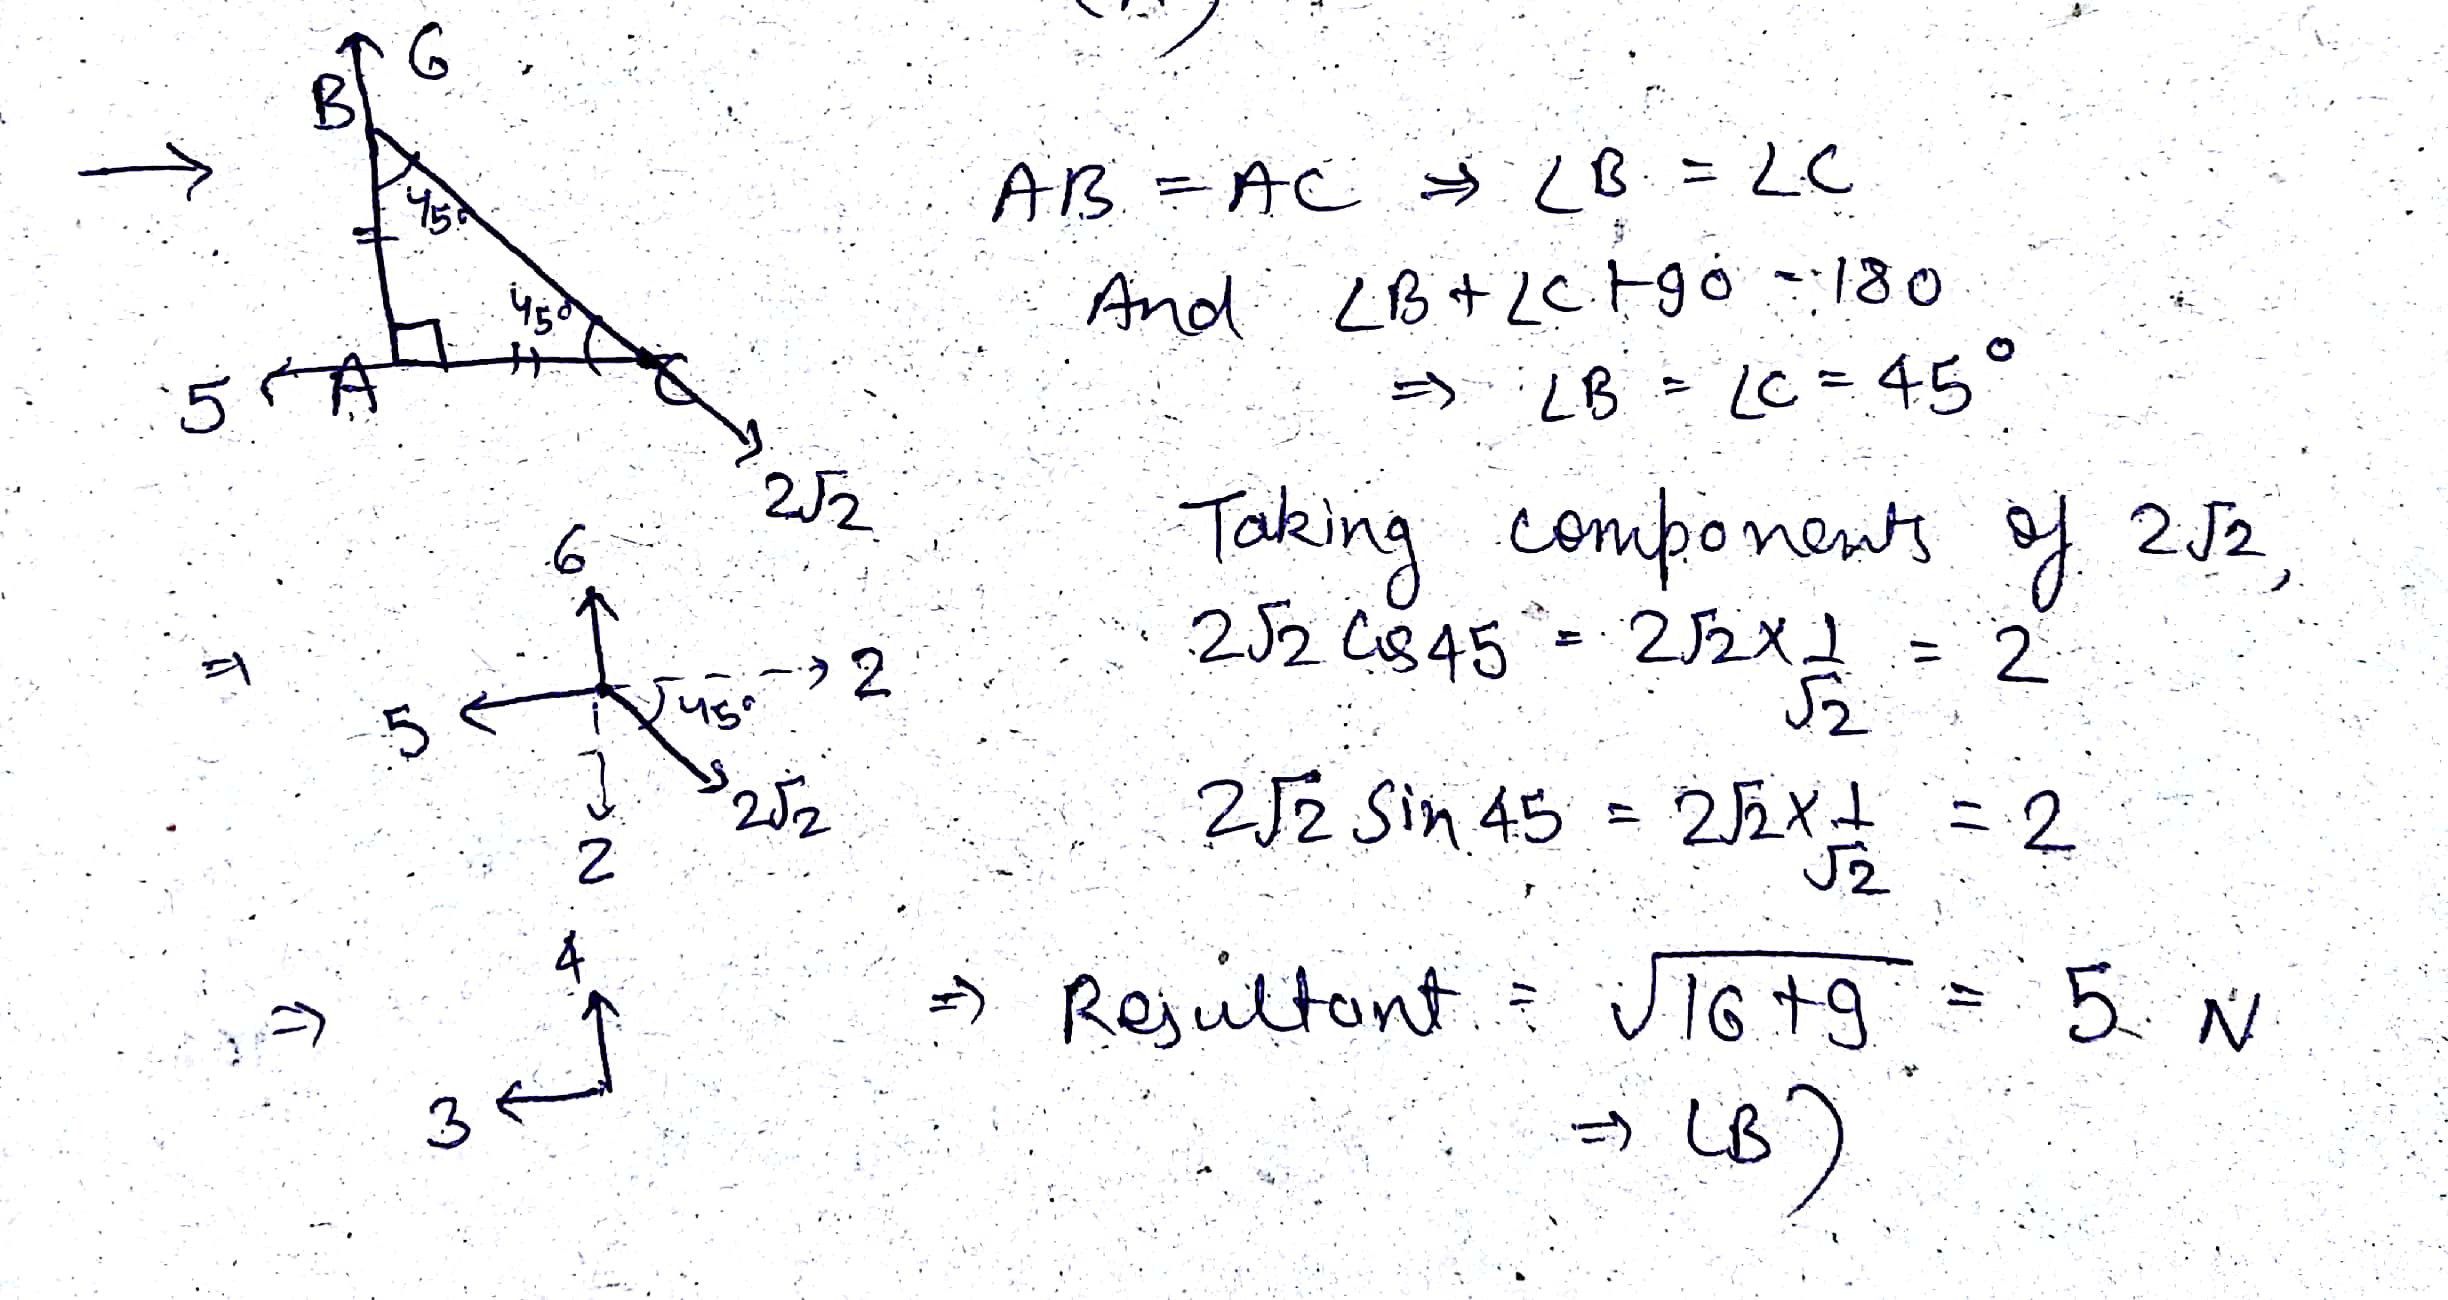 6
B
45°
45°
5
A
C
2√2
AB = AC ⇒ ∠B = ∠C
And ∠B + ∠C + 90 = 180
⇒ ∠B = ∠C = 45°
Taking components of 2√2,
2√2 Cos 45 = 2√2 × 1/√2 = 2
2√2 Sin 45 = 2√2 × 1/√2 = 2
⇒
6
2
45°
5
2√2
2
⇒
4
3
⇒ Resultant = √16+9 = 5 N
⇒ (B)